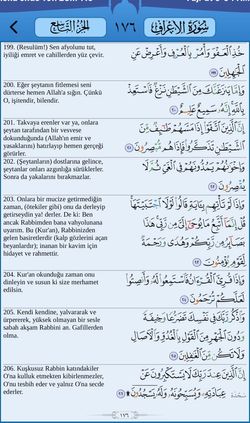 الجزء التاسع
١٧٦
سورة الاعراف
199. (Resulüm!) Sen afyolunu tut,
iyiliği emret ve cahillerden yüz çevir.
خُذِ الْعَفْوَ وَأْمُرْ بِالْعُرْفِ وَأَعْرِضْ عَنِ
الْجَاهِلِينَ
200. Eğer şeytanın fitlemesi seni
dürterse hemen Allah'a sığın. Çünkü
O, işitendir, bilendir.
وَإِمَّا يَنْزَغَنَّكَ مِنَ الشَّيْطَانِ نَزْغٌ فَاسْتَعِذْ
بِاللَّهِ إِنَّهُ سَمِيعٌ عَلِيمٌ
201. Takvaya erenler var ya, onlara
şeytan tarafından bir vesvese
dokunduğunda (Allah'ın emir ve
yasaklarını) hatırlayıp hemen gerçeği
görürler.
إِنَّ الَّذِينَ اتَّقَوْا إِذَا مَسَّهُمْ طَائِفٌ مِنَ
الشَّيْطَانِ تَذَكَّرُوا فَإِذَا هُمْ مُبْصِرُونَ
202. (Şeytanların) dostlarına gelince,
şeytanlar onları azgınlığa sürüklerler.
Sonra da yakalarını bırakmazlar.
وَإِخْوَانُهُمْ يَمُدُّونَهُمْ فِي الْغَيِّ ثُمَّ لَا
يُقْصِرُونَ
203. Onlara bir mucize getirmediğin
zaman, (ötekiler gibi) onu da derleyip
getirseydin ya! derler. De ki: Ben
ancak Rabbimden bana vahyolunana
uyarım. Bu (Kur'an), Rabbinizden
gelen basiretlerdir (kalp gözlerini açan
beyanlardır); inanan bir kavim için
hidayet ve rahmettir.
وَإِذَا لَمْ تَأْتِهِمْ بِآيَةٍ قَالُوا لَوْلَا اجْتَبَيْتَهَا
قُلْ إِنَّمَا أَتَّبِعُ مَا يُوحَى إِلَيَّ مِنْ رَبِّي هَذَا
بَصَائِرُ مِنْ رَبِّكُمْ وَهُدًى وَرَحْمَةٌ
لِقَوْمٍ يُؤْمِنُونَ
204. Kur'an okunduğu zaman onu
dinleyin ve susun ki size merhamet
edilsin.
وَإِذَا قُرِئَ الْقُرْآنُ فَاسْتَمِعُوا لَهُ وَأَنْصِتُوا
لَعَلَّكُمْ تُرْحَمُونَ
205. Kendi kendine, yalvararak ve
ürpererek, yüksek olmayan bir sesle
sabah akşam Rabbini an. Gafillerden
olma.
وَاذْكُرْ رَبَّكَ فِي نَفْسِكَ تَضَرُّعًا وَخِيفَةً
وَدُونَ الْجَهْرِ مِنَ الْقَوْلِ بِالْغُدُوِّ وَالْآصَالِ
وَلَا تَكُنْ مِنَ الْغَافِلِينَ
206. Kuşkusuz Rabbin katındakiler
O'na kulluk etmekten kibirlenmezler,
O'nu tesbih eder ve yalnız O'na secde
ederler.
إِنَّ الَّذِينَ عِنْدَ رَبِّكَ لَا يَسْتَكْبِرُونَ عَنْ
عِبَادَتِهِ وَيُسَبِّحُونَهُ وَلَهُ يَسْجُدُونَ
١٧٦